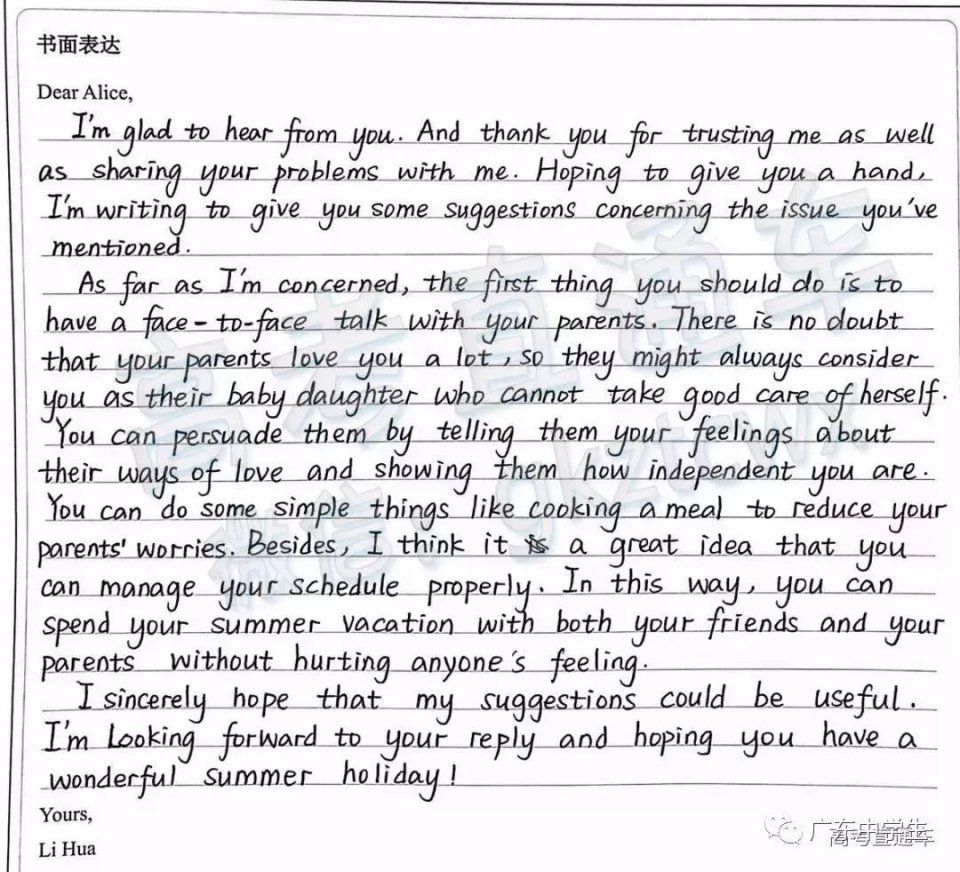 书面表达
Dear Alice,
I'm glad to hear from you. And thank you for trusting me as well
as sharing your problems with me. Hoping to give you a hand,
I'm writing to give you some suggestions concerning the issue you've
mentioned.
As far as I'm concerned, the first thing you should do is to
have a face-to-face talk with your parents. There is no doubt
that your parents love you a lot, so they might always consider
you as their baby daughter who cannot take good care of herself.
You can persuade them by telling them your feelings about
their ways of love and showing them how independent you are.
You can do some simple things like cooking a meal to reduce your
parents' worries. Besides, I think it is a great idea that you
can manage your schedule properly. In this way, you can
spend your summer vacation with both your friends and your
parents without hurting anyone's feeling.
I sincerely hope that my suggestions could be useful.
I'm looking forward to your reply and hoping you have a
wonderful summer holiday!
Yours,
Li Hua
高考直通车
微信：gkztcwx
广东中学生
高考直通车